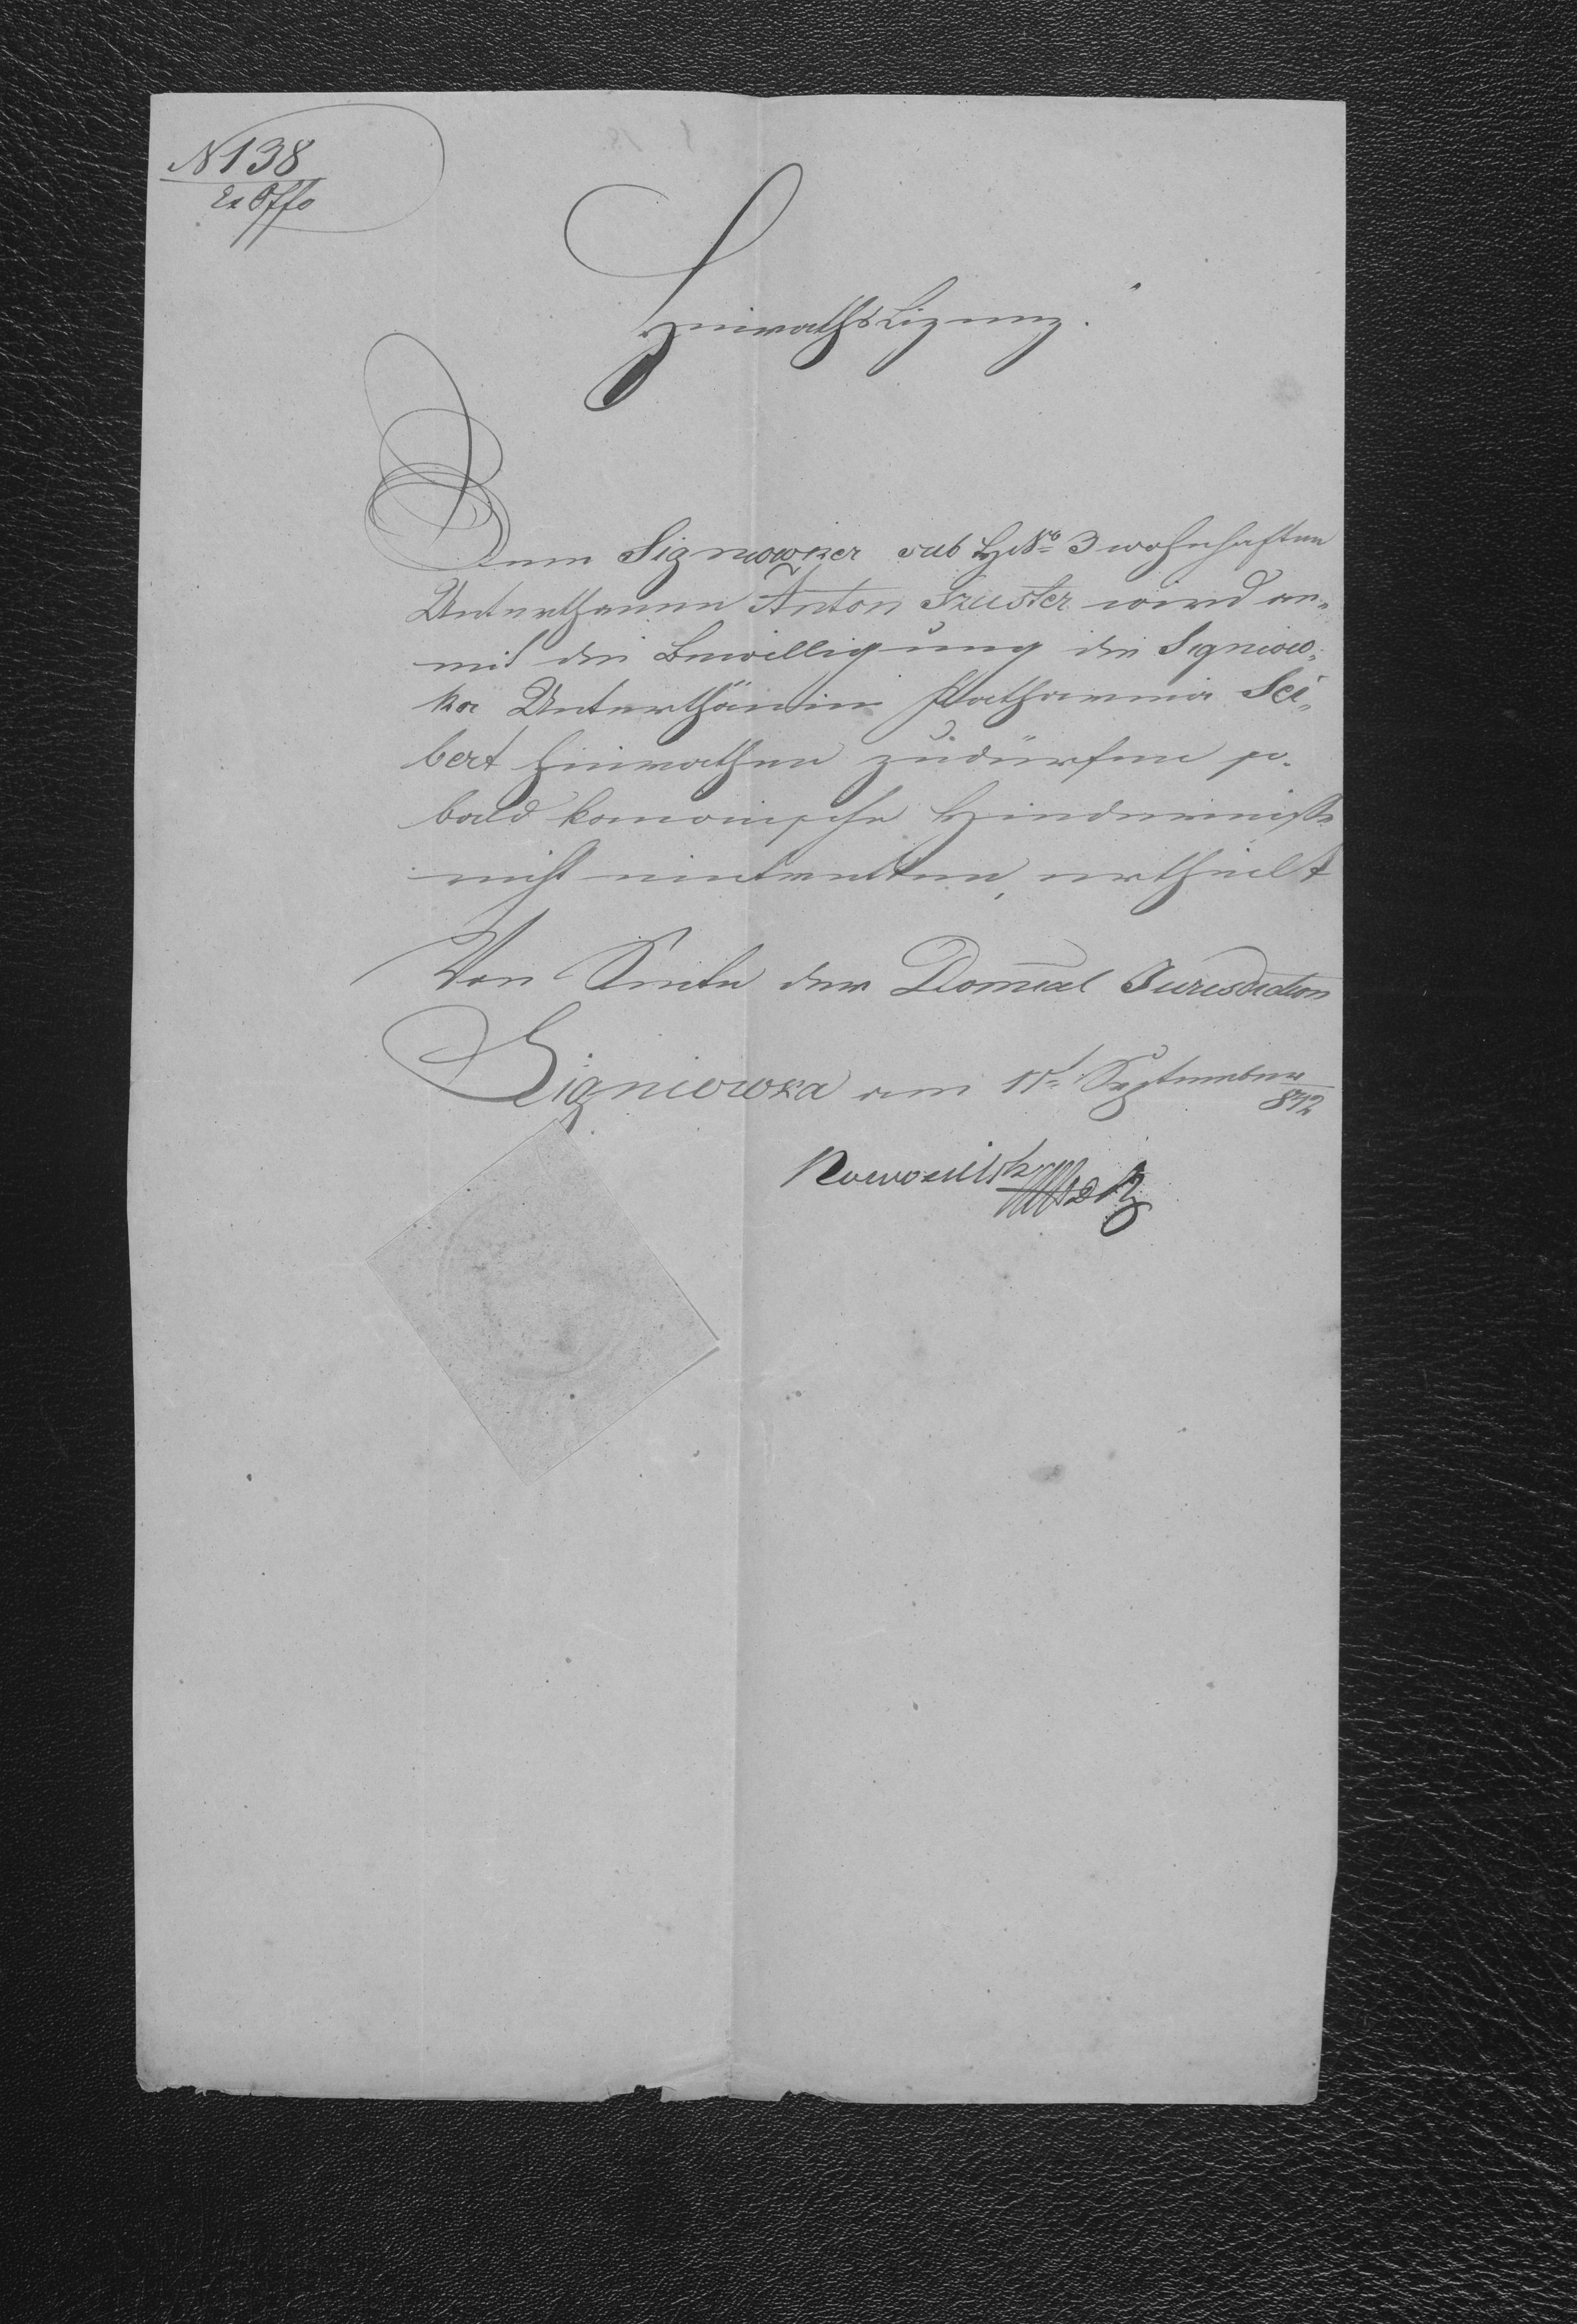 N 138
Ex Offo
Heirathslizenz.
Dem Signiowker sub HNro 3 wohnhaften
Unterthanen Anton Szuster wird an„
mit die Bewilligung die Signiow„
ka Unterthänin Katharina Sei„
bert heirathen zu dürfen so„
bald kanonische Hinderniße
nicht eintretten, ertheilt
Von Seite der Domeal Jurisdiction
Signiowka am 11t September
842